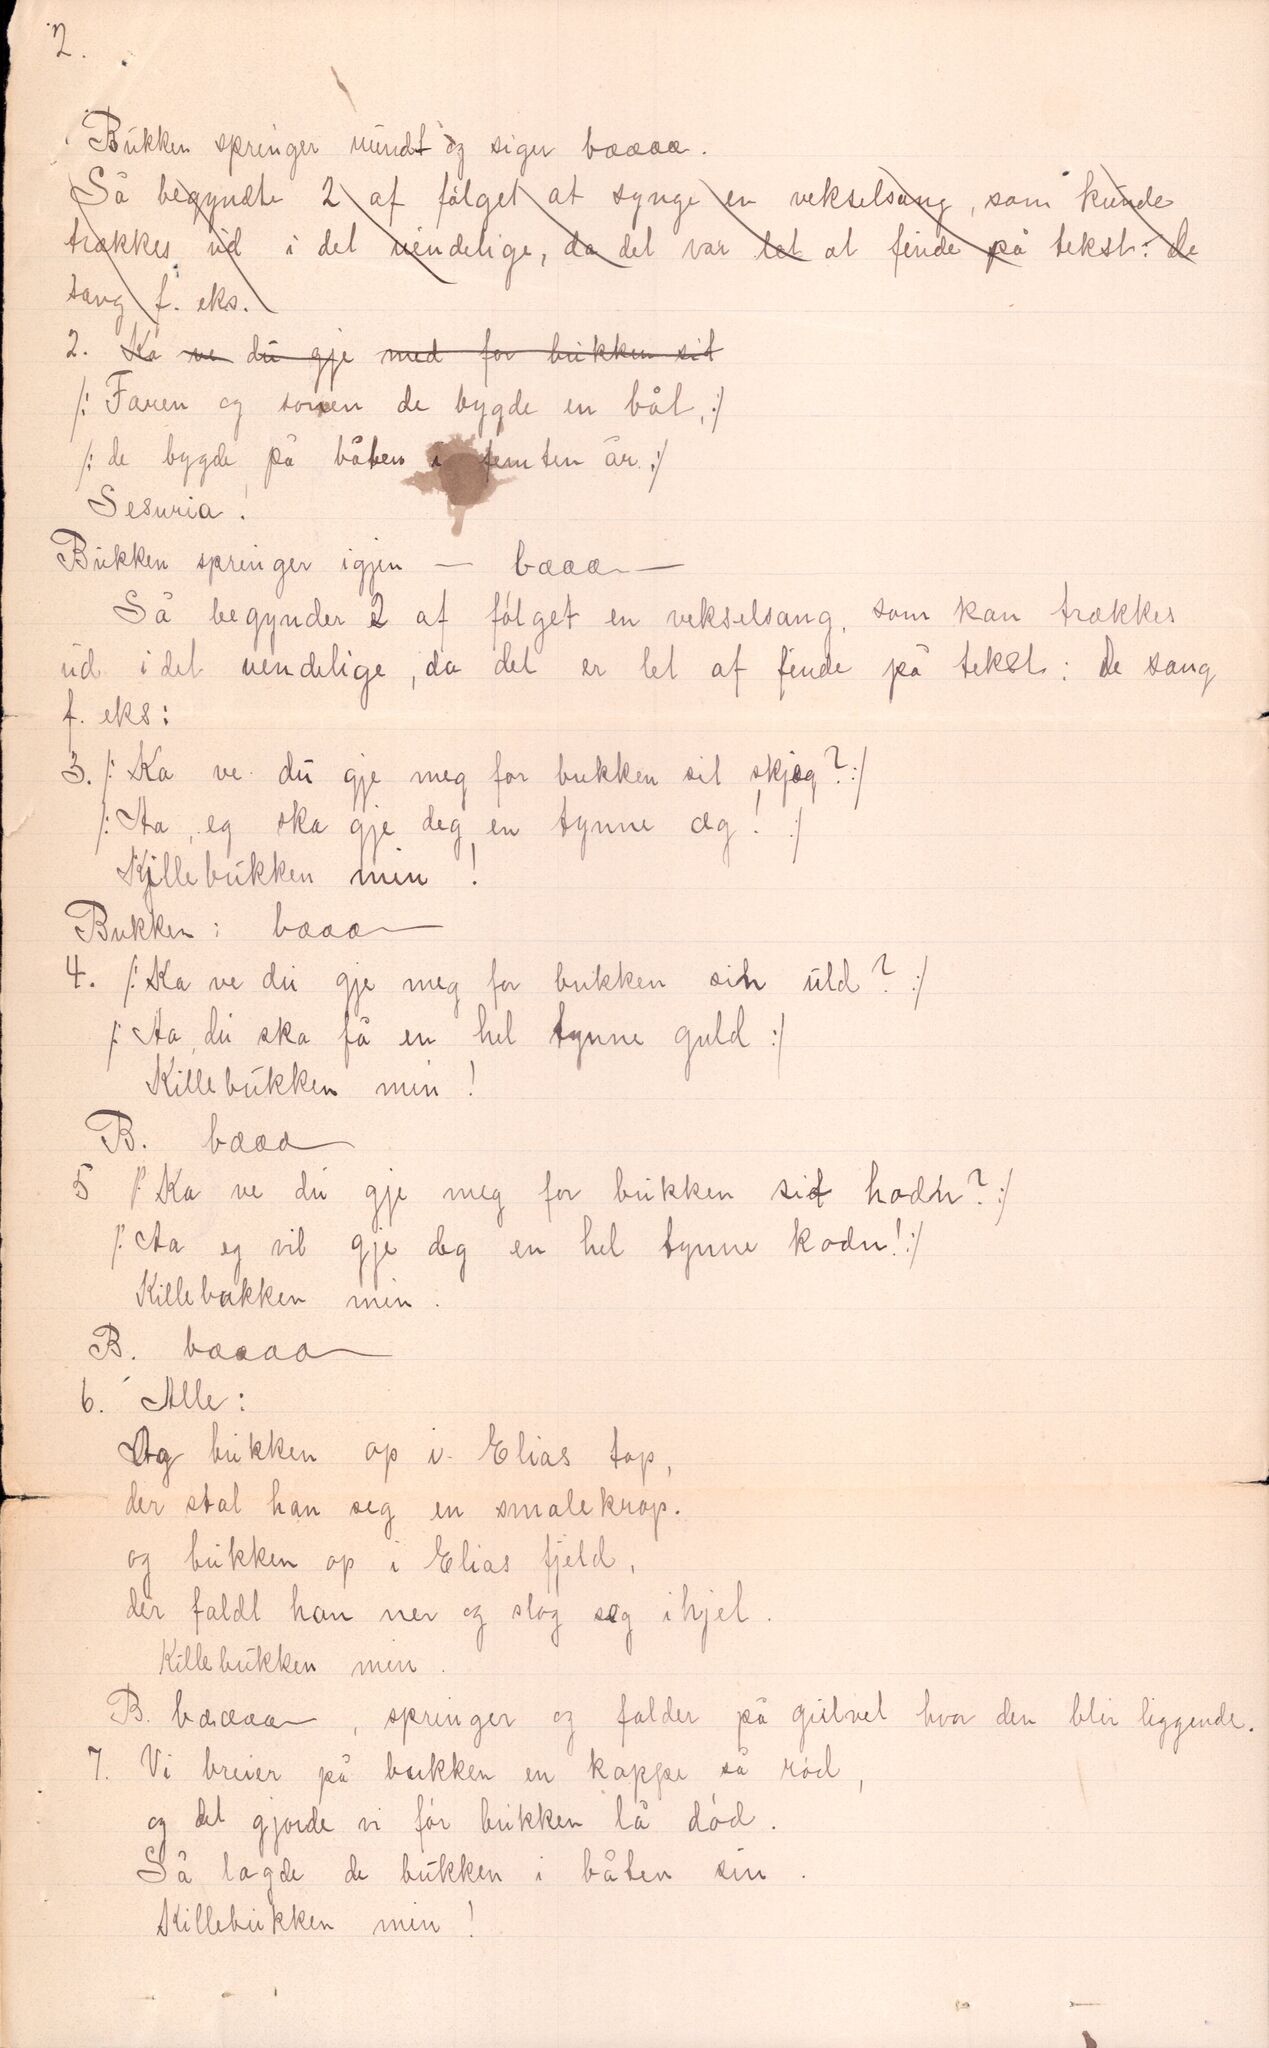 2.
Bukken springer rundt og siger bææææ.
Så begyndte 2 af følget at synge en vekselsang, som kunde
trækkes ud i det uendelige, da det var let at finde på tekst: de
sang f. eks.
2. Ka ve du gje med for bukken sit
/: Faren og sonen de bygde en båt, :/
/: de bygde på båten i femten år. :/
Sesuria!
Bukken springer igjen — bæææ —
Så begynder 2 af følget en vekselsang, som kan trækkes
ud i det uendelige, da det er let af finde på tekst: De sang
f. eks:
3. /: Ka ve du gje meg for bukken sit skjæg? :/
/: Aa, eg ska gje deg en tynne æg! :/
Killebukken min!
Bukken: bæææ—
4. /: Ka ve du gje meg for bukken sin uld? :/
/: Aa, du ska få en hel tynne guld :/
Killebukken min!
B. bæææ
5 /: Ka ve du gje meg for bukken sit hodn? :/
/: Aa eg vil gje deg en hel tynne kodn! :/
Killebukken min.
B. bææææ—
6. Alle:
Og bukken op i Elias top,
der stal han seg en smalekrop.
og bukken op i Elias fjeld,
der faldt han ner og slog seg ihjel.
Killebukken min.
B. bææææ—, springer og falder på gulvet hvor den blir liggende.
7. Vi breier på bukken en kappe så rød,
og det gjorde vi før bukken lå død.
Så lagde de bukken i båten sin.
Killebukken min!